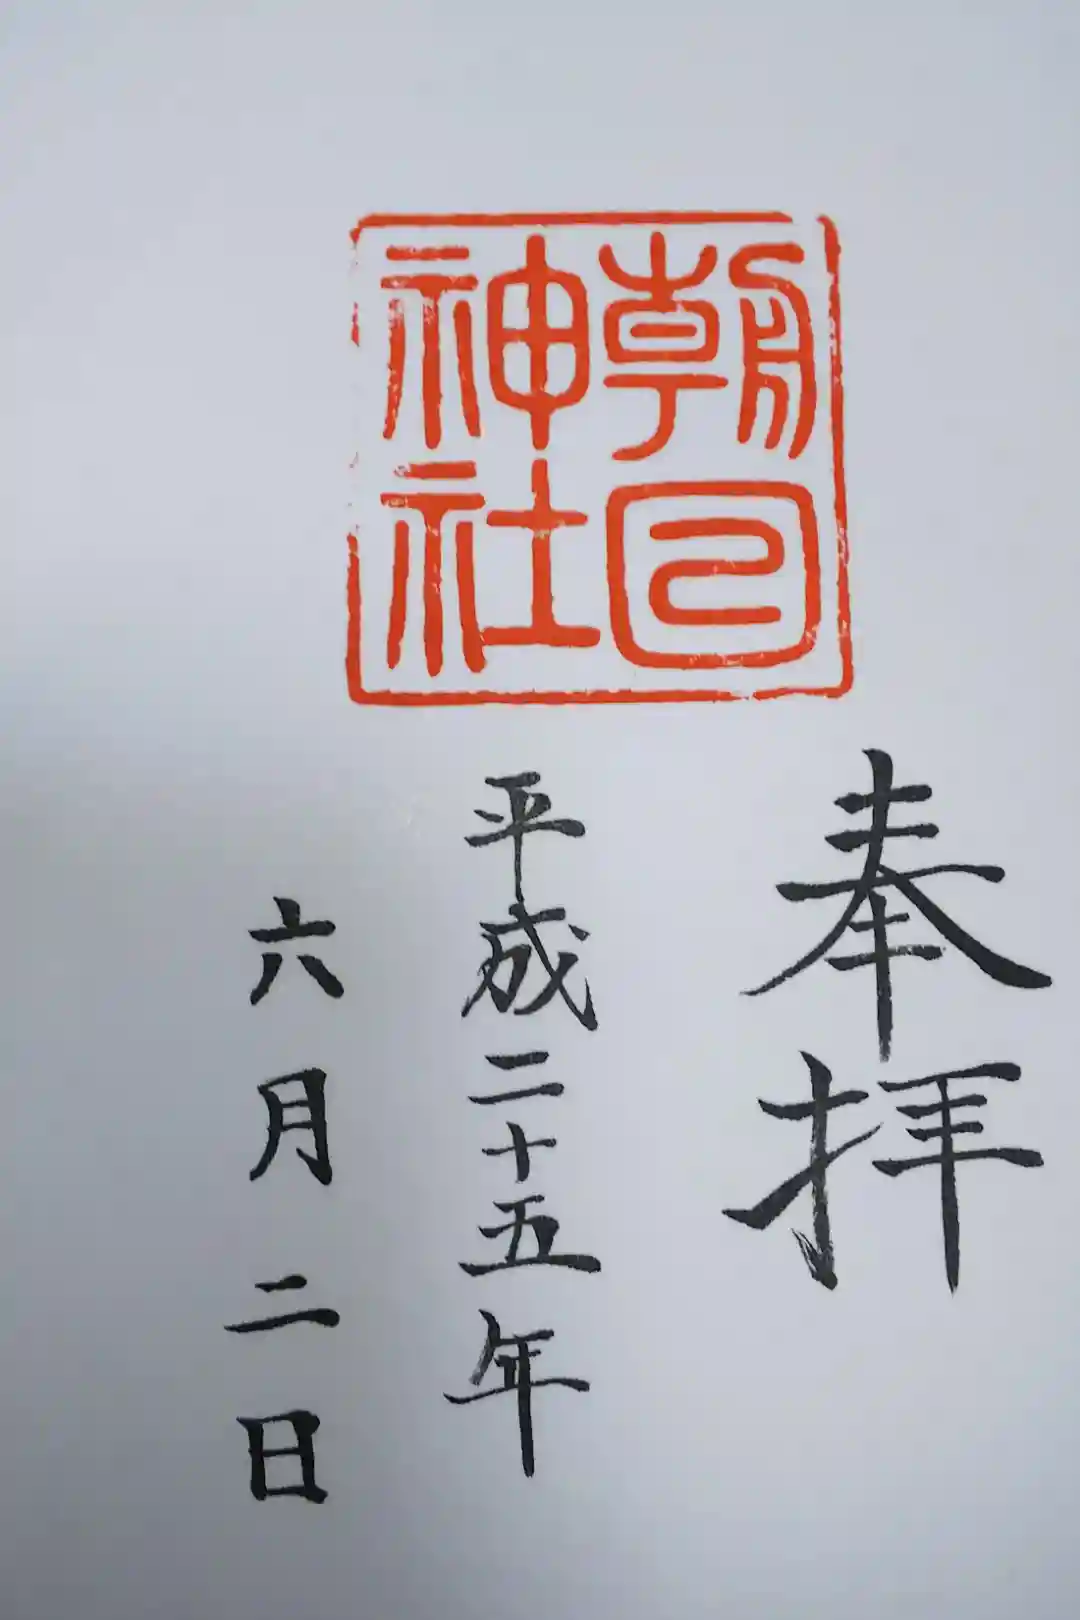 朝日
神社
奉拝
平成二十五年
六月二日